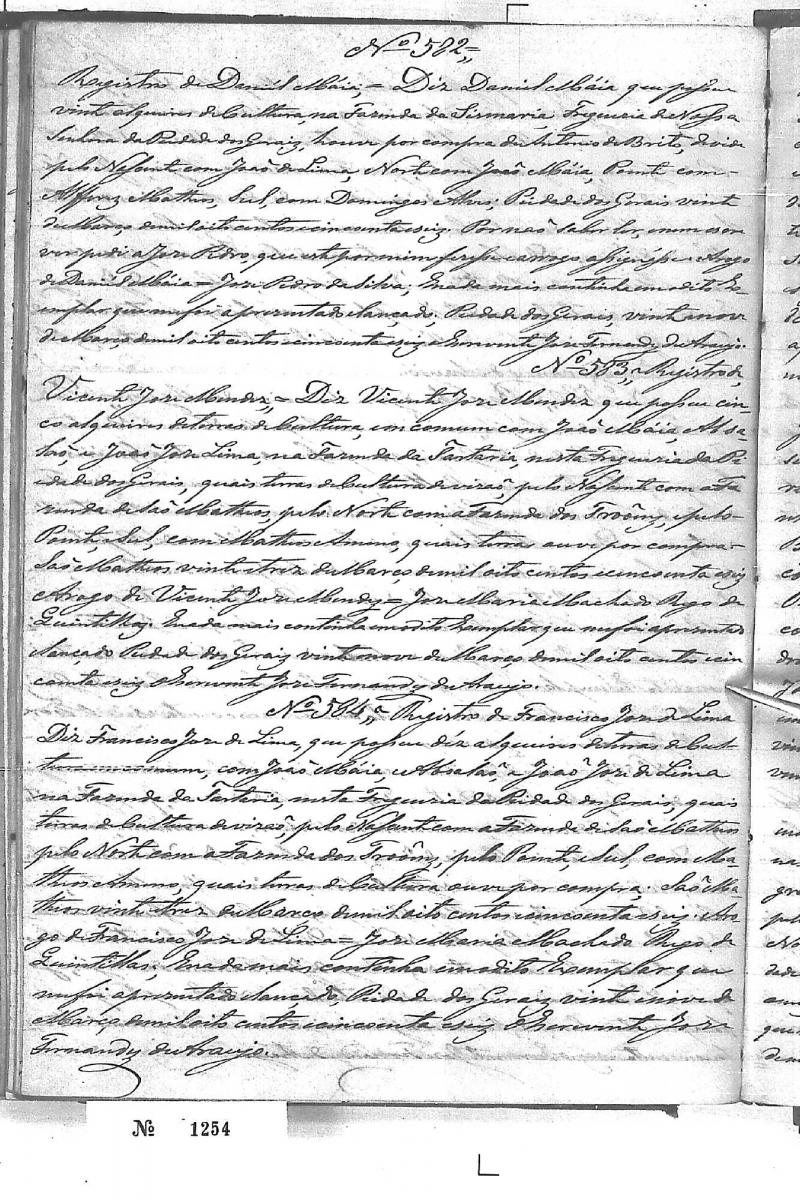 Nº 582=,,
Registro de Daniel Máia, = Diz Daniel Máia que possue
vint alqueires de Cultura, na Fazenda da Sismaria, Freguezia de Nossa
Senhora da Piedade dos Geraiz, houve por compra de Antonio de Brito, devide
pelo Nassent com João de Lima, Nort com João Máia, Poent com
Matheus, Sul, com Domingos Alves; Piedade dos Geraiz vint
de Março de mil oito centos e cincoenta e seiz. Por não saber ler, e nem escre
ver pedi a Joze Pedro, que est por mim fizesse e arrogo assignasse = Arogo
de Daniel Máia = Joze Pedro da Silva; Enada mais continha em o dito Ex-
emplar que me foi aprezentado e lançado, Piedade dos Geraiz, vint e nove
de Março de mil oito centos e cincoenta e seiz o Escrevente Joze Fernandez de Araujo.
Nº 583,, Registro de,
Vicente Joze Mendez,, = Diz Vicente Joze Mendez que possue cin-
co alqueires de terras de Cultura, em comum com João Máia, e Absa-
lão, e João Joze Lima, na Fazenda da Tartaria, nesta Freguezia da Pi-
edade dos Geraiz, quais terras de Cultura devizão, pelo Nassent com a Fa
zenda de São Matheos, pelo Nort com a Fazenda dos, e pelo
Poent, e Sul, com Matheos, quais terras ouve por compra
São Matheos vint e trez de Março, de mil oito centos e cincoenta e seiz
Arogo de Vicente Joze Mendez = Joze Maria Machado Rego de
Quintilhas; Enada mais continha em o dito Exemplar que me foi aprezentado
e lançado Piedade dos Geraiz vint e nove de Março de mil oito centos e cin
coenta e seiz o Escrevente Joze Fernandez de Araujo.
Nº 584,, = Registro de Francisco Joze de Lima
Diz Francisco Joze de Lima, que possue déz alqueires de terras de Cul-
tura em comum, com João Máia, e Absalão, e João Joze de Lima
na Fazenda da Tartaria, nesta Freguezia da Piedade dos Geraiz, quais
terras de Cultura devizão, pelo Nassent com a Fazenda de São Matheos
pelo Nort com a Fazenda dos, pelo Poent, e Sul, com Ma-
theos, quais terras de Cultura ouve por compra; São Ma
theos vint e trez de Março de mil oito centos e cincoenta e seiz. Aro
go de Francisco Joze de Lima = Joze Maria Machado Rego de
Quintilhas; Enada mais continha em o dito Exemplar que
me foi aprezentado e lançado, Piedade dos Geraiz vint e nove de
Março de mil oito centos e cincoenta e seiz o Escrevente Joze
Fernandez de Araujo.
Nº 1254